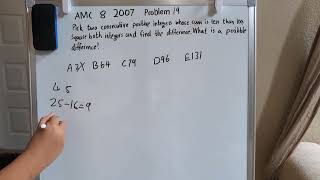 AMC 8 2007 Problem 19
Pick two consecutive positive integers whose sum is less than 100.
Square both integers and find the difference. What is a possible
difference?
A2 B64 C79 D96 E131
4 5
25-16=9